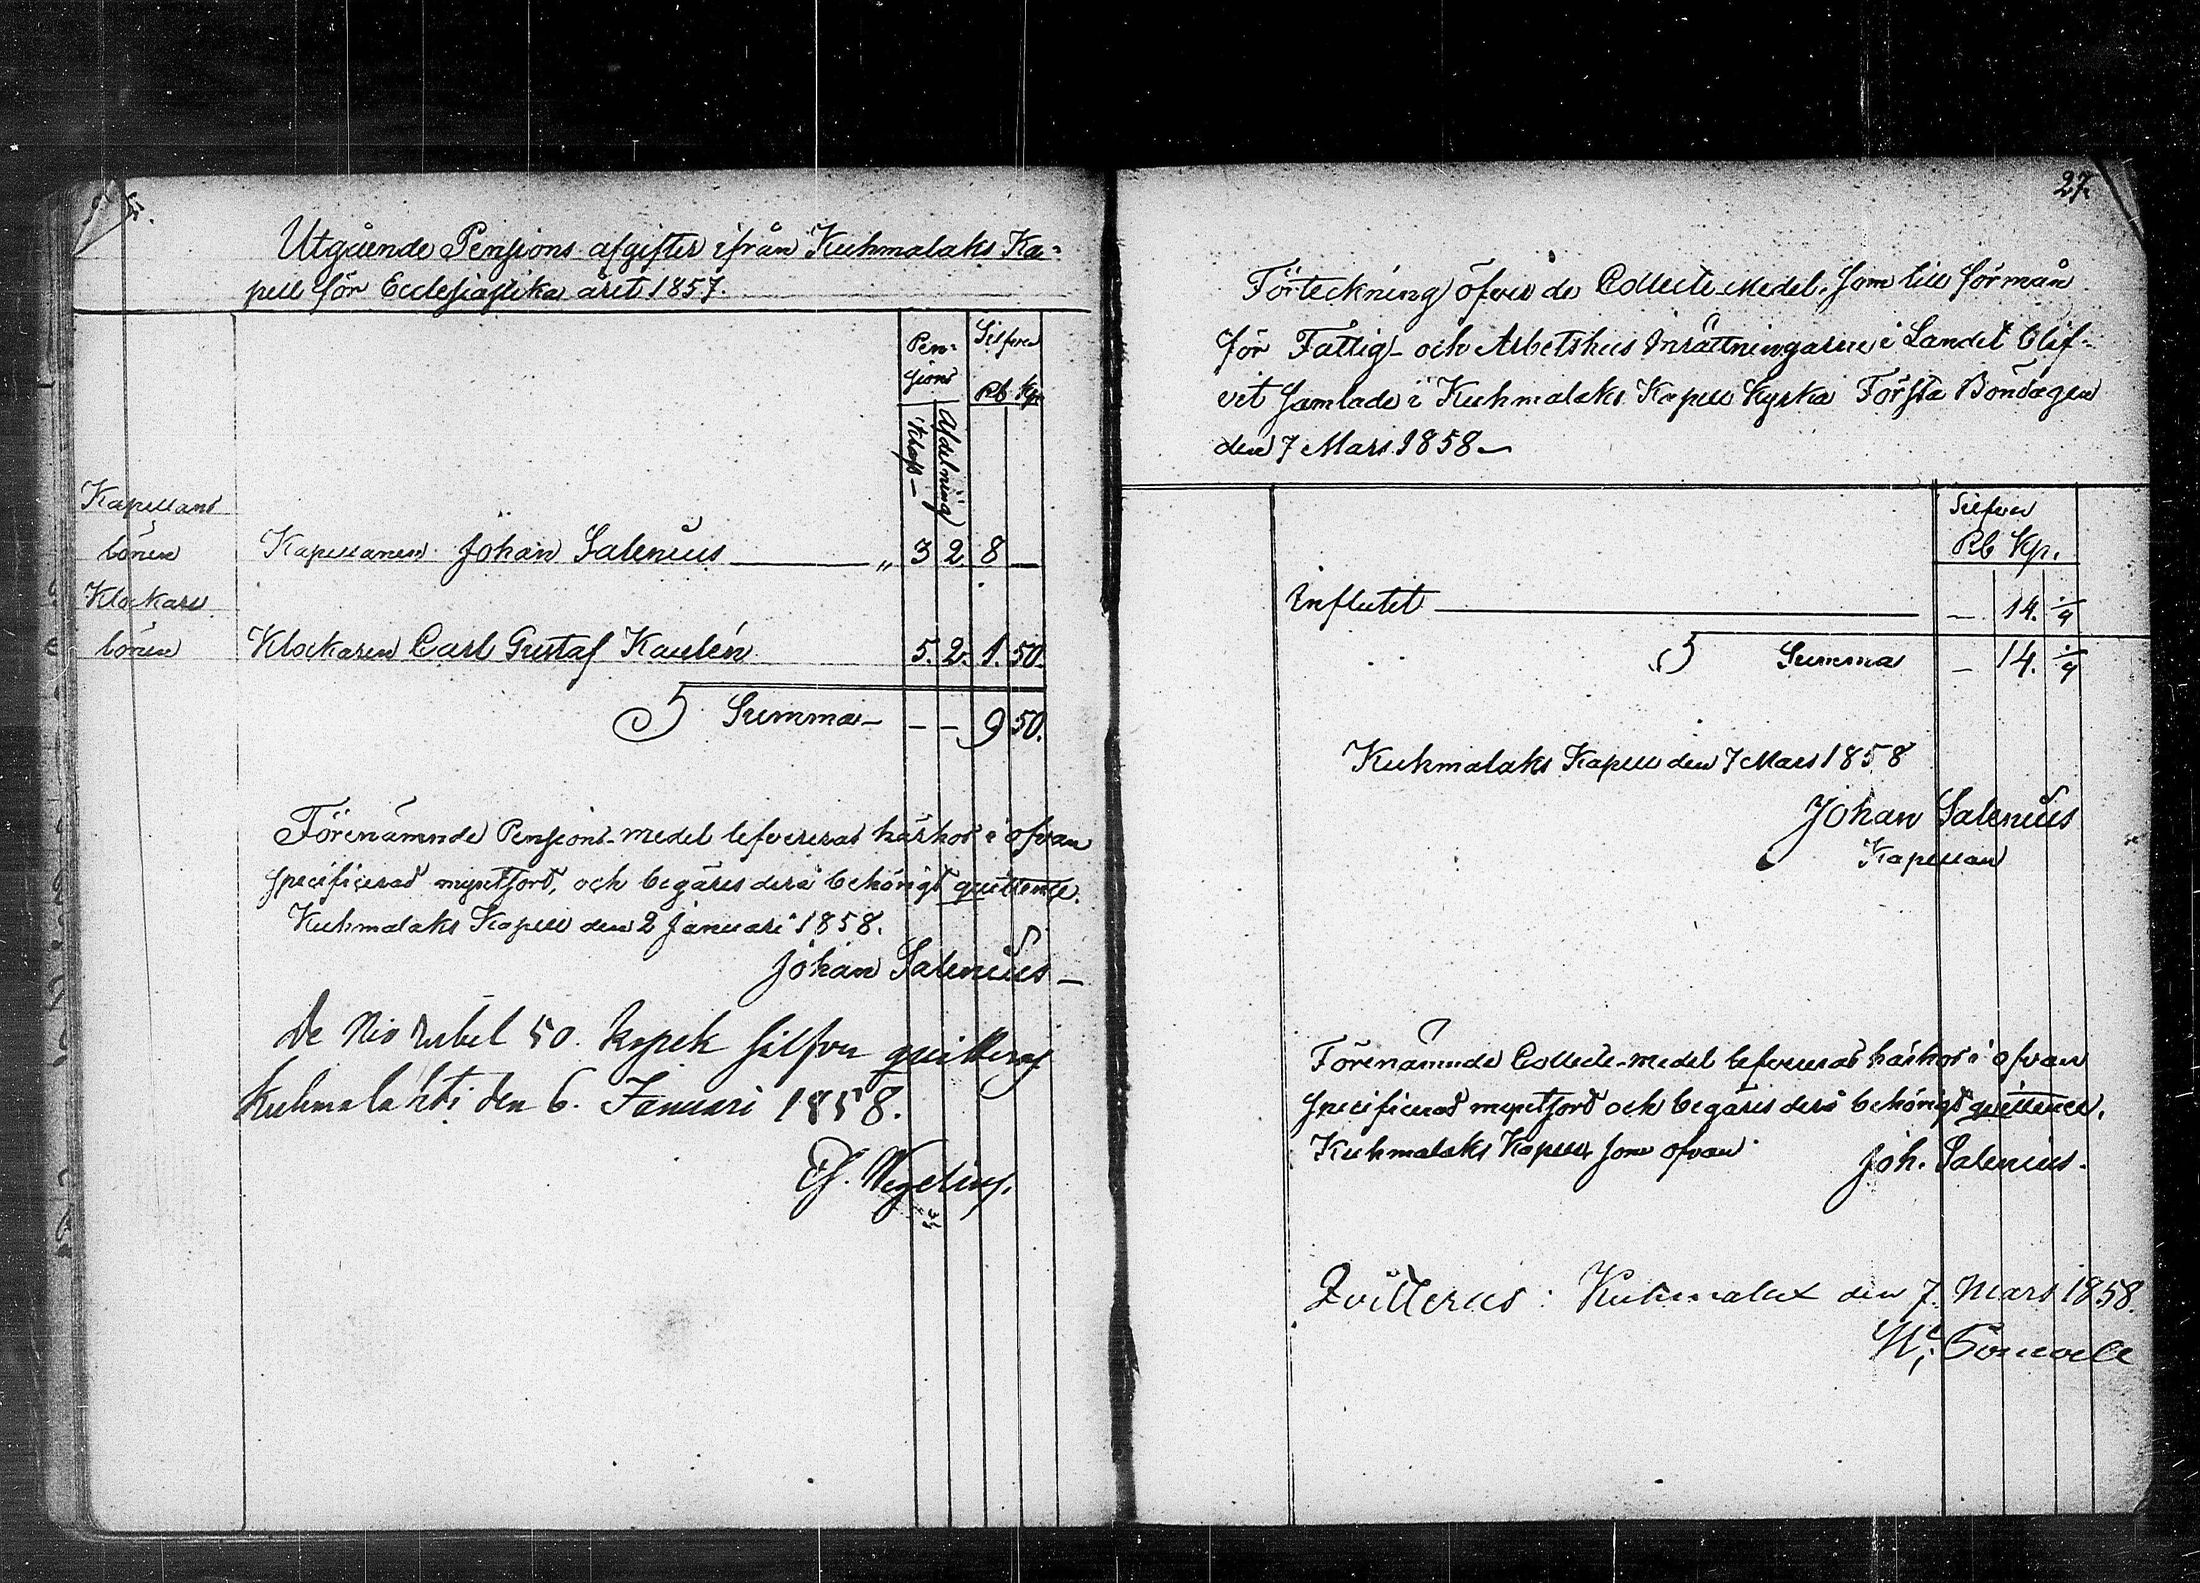 Utgående Pensions afgifter ifrån Kuhmalaks Ka-
pell för Ecclesiastika året 1857.
Pen-
sions
Silfver
Rb Kp.
Klass
Afdelning
Kapellans
bönen
Kapellanen Johan Salenius — „ 3 2 8 —
Klockare
bönen
Klockaren Carl Gustaf Kaulén 5. 2. 1. 50.
Summa — — — 9 50.
Förenämnde Pensions-medel lefvereras härhos i ofvan
specificerad myntsort, och begäres derå behörigt quittence.
Kuhmalaks Kapell den 2 Januari 1858.
Johan Salenius —
De Nio rubel 50. kopek silfver quitteras
Kuhmalahti den 6. Januari 1858.
Wegelius.
27.
Förteckning öfver de Collecte Medel, som till förmån
för Fattig- och Arbetshus Inrättningarne i Landet blif-
vit samlade i Kuhmalaks Kapell Kyrka Första Böndagen
den 7 Mars 1858 —
Silfver
Rb Kp.
Influtit — — 14. 
Summa — 14. 
Kuhmalaks Kapell den 7 Mars 1858
Johan Salenius
Kapellan
Förenämnde Collecte-medel lefvereras härhos i ofvan
specificerad myntsort och begäres derå behörigt quittence.
Kuhmalaks Kapell som ofvan.
Joh. Salenius.
Qvitteras: Kuhmalax den 7. Mars 1858.